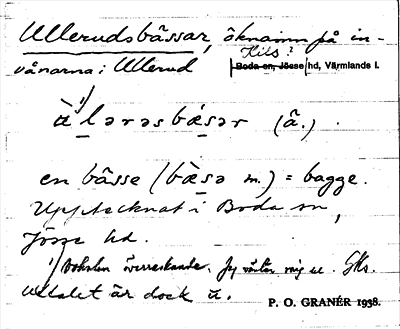 Ullerudsbässar, öknamn på in-
Kils?
vånarna i Ullerud
Boda sn, Jösse hd, Värmlands l.
ù¹⁾lǝrǝsbǽsǝr (ã.)
en bässe (bæ̀sǝ m.) = bagge.
Upptecknat i Boda sn,
Jösse hd.
1) Vokalen överraskande. Jag väntar mig u.
Uttalet är dock ū.
P. O. GRANÉR 1938.